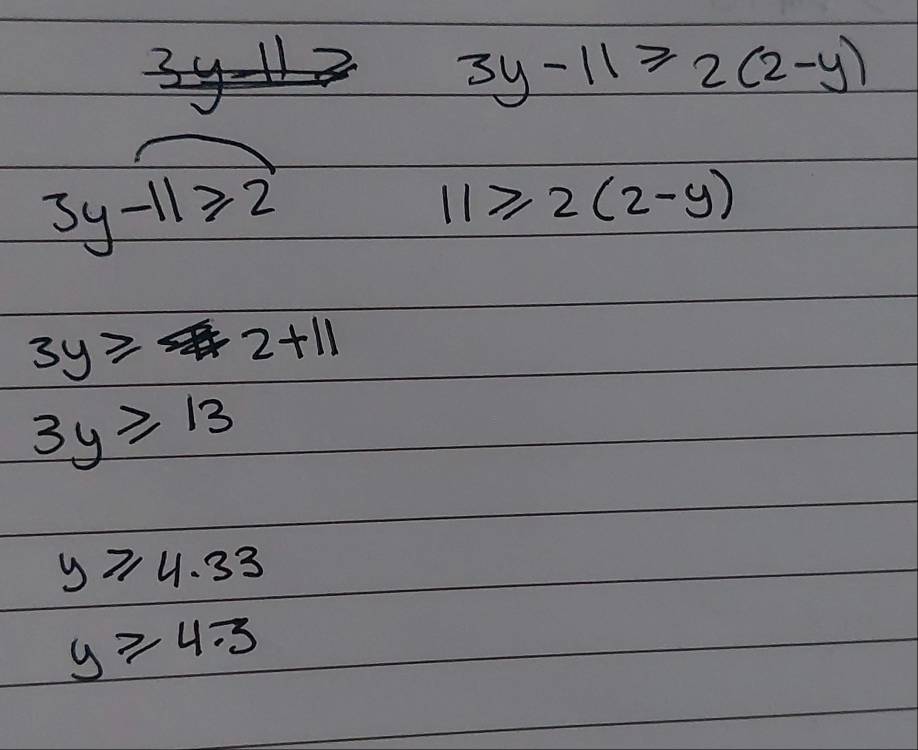 3y-11≥ 3y-11≥2(2-y)
3y-11≥2 11≥2(2-y)
3y≥ 2+11
3y≥13
y≥4.33
y≥4.3